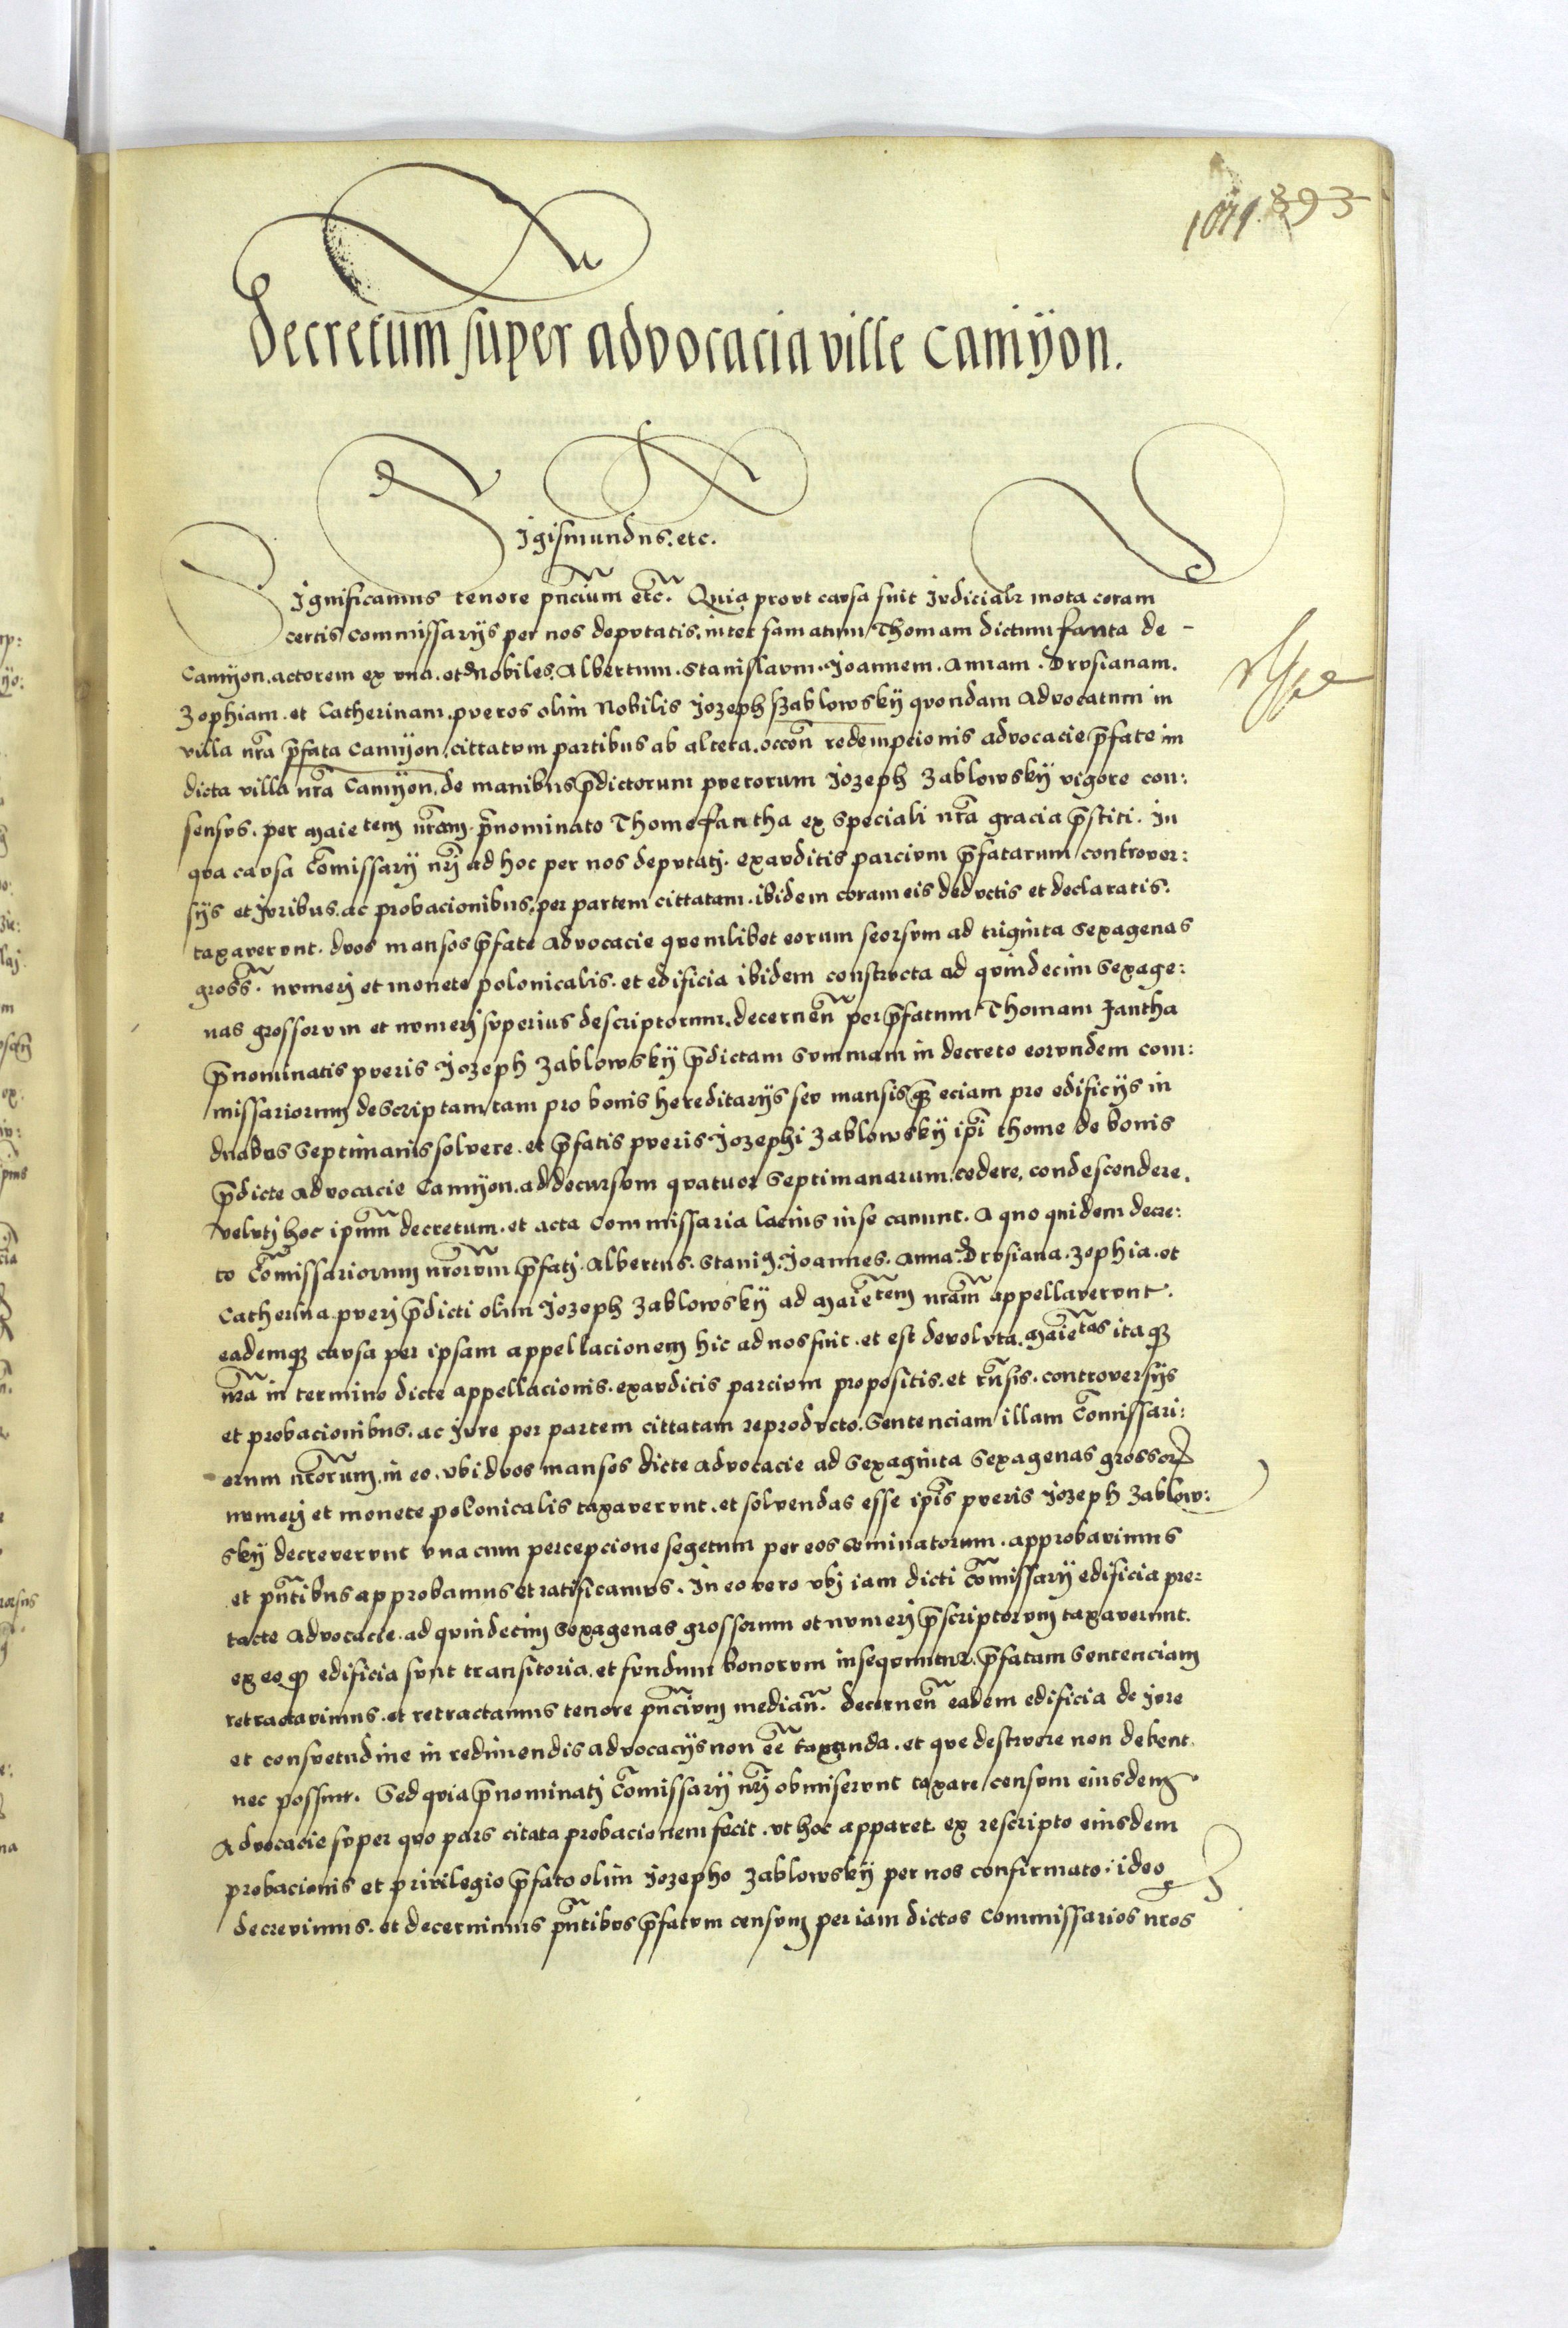 393
Decretum super advocacia ville Camÿon.
Sigismundus. etc.
Significamus tenore pñcium etc. Quia prout causa fuit Judicialr mota coram
certis commissarÿs per nos deputatis. inter famatum Thomam dictum Jantha de -
Camÿon. actorem ex una. et Nobiles. Albertum. Stanislaum. Joannem. Annam. Drusianam.
Zophiam. et Catherinam. pueros olim Nobilis Jozeph Zablowskÿ quondam Advocatum in
villa nr̃a p̃fata Camÿon. cittatum partibus ab altera. occoñ redempcionis advocacie p̃fate in
dicta villa nr̃a Camÿon. de manibus p̃dictorum puerorum Jozeph Zablowskÿ vigore con:
sensus. per Maietem nr̃am. p̃nominato Thome Jantha ex speciali nr̃a gracia p̃stiti. In
qua causa Com̃issarÿ nr̃j ad hoc per nos deputatj. exauditis parcium p̃fatarum controver:
sÿs et Juribus. ac probacionibus. per partem cittatam. ibidem coram eis deductis et declaratis.
taxaverunt. duos mansos p̃fate advocacie quemlibet eorum seorsum ad triginta sexagenas
gross̃. numerj et monete polonicalis. et edificia ibidem constructa ad quindecim sexage:
nas grossorum et numerj superius descriptorum. decerneñ per p̃fatum Thomam Jantha
p̃nominatis pueris Jozeph Zablowskÿ p̃dictam summam in decreto eorundem com:
missariorum descriptam tam pro bonis hereditarÿs seu mansis q̃ eciam pro edificÿs in
duabus septimanis solvere. et p̃fatis pueris Jozephi Zablowskÿ ip̃i thome de bonis
p̃dicte advocacie Camÿon. ad decursum quatuor septimanarum. cedere. condescendere.
velutj hoc ipsum decretum. et acta Commissaria lacius in se canunt. A quo quidem decre:
to Com̃issariorum nr̃orum p̃fatj. Albertus. Stanis. Joannes. Anna. Drusiana. Zophia. et
Catherina puerj p̃dicti olim Jozeph Zablowskÿ ad Maiestem nr̃am appellaverunt.
eademq causa per ipsam appellacionem hic ad nos fuit. et est devoluta. Maiestas itaq
nr̃a in termino dicte appellacionis. exauditis parcium propositis. et rñsis. controversÿs
et probacionibus. ac Jure per partem cittatam reproducto. Sentenciam illam Com̃issari:
orum nr̃orum. in eo. ubi duos mansos dicte advocacie ad sexaginta sexagenas grossor
numerj et monete polonicalis taxaverunt. et solvendas esse ip̃is pueris Jozeph Zablow:
skÿ decreverunt una cum percepcione segetum per eos seminatorum. approbavimus
et pñtibus approbamus et ratificamus. In eo vero ubj iam dicti Com̃issarÿ edificia pre:
tacte advocacie. ad quindecim sexagenas grossorum et numerj p̃scriptorum taxaverunt.
ex eo q edificia sunt transitoria. et fundum bonorum insequuntur. p̃fatam sentenciam
retractavimus. et retractamus tenore pñcium mediañ. decerneñ eadem edificia de jure
et consuetudine in redimendis advocacÿs non eẽ taxanda. et que destruere non debent.
nec possunt. Sed quia p̃nominatj Com̃issarÿ nr̃j obmiserunt taxare censum eiusdem
Advocacie super quo pars citata probacionem fecit. ut hoc apparet ex rescripto eiusdem
probacionis et privilegio p̃fato olim Jozepho Zablowskÿ per nos confirmato. ideo
decrevimus. et decernimus pñtibus p̃fatum censum per iam dictos Commissarios nr̃os